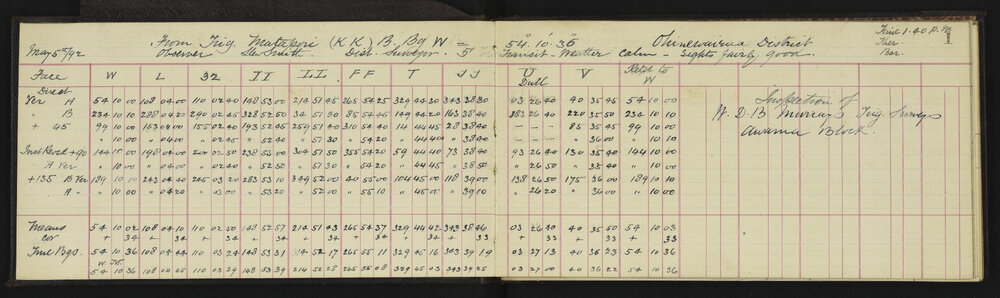 From Trig. Matakori (KK) B. Bg W = 54°.10'.36" Time 1.40 P.M.
May 5th/92 Observer Dist. Surveyor. 5" Transit - Weather Calm - Sights fairly good. District Ther.
Bar.
Face W L 32 II LL FF T JJ U V Retd to
Dull W
Direct
Ver A 54 10 00 108 04 00 110 02 40 148 53 00 214 51 45 265 54 25 329 44 30 343 38 30 03 26 40 40 35 45 54 10 00 Inspection of
" B 234 10 10 288 04 20 290 02 45 328 52 50 34 51 30 85 54 45 149 44 20 163 38 40 183 26 40 220 35 50 234 10 10 W. D. B. Murray's Trig Surveys
+ 45 99 10 00 153 04 00 155 02 40 193 52 45 259 51 40 310 54 40 14 44 45 28 38 40 - - - 85 35 45 99 10 00 Awarua Block
" 10 00 " 04 00 " 02 45 " 52 40 " 51 30 " 54 20 " 44 40 " 38 40 - - - " 36 00 " 10 00
Inst Revsd +90 144 10 00 198 04 00 200 02 50 238 53 00 304 51 50 355 54 20 59 44 40 73 38 40 93 26 40 130 35 40 144 10 00
A Ver " 10 00 " 04 00 " 02 40 " 52 50 " 51 30 " 54 20 " 44 45 " 38 50 " 26 50 " 35 40 " 10 00
+135 B Ver 189 10 10 243 04 40 245 03 20 283 53 10 349 52 00 40 55 00 104 45 00 118 39 00 138 26 50 175 36 00 189 10 10
A " " 10 00 " 04 20 " 03 00 " 53 20 " 52 00 " 55 10 " 45 00 " 39 10 " 26 20 " 36 00 " 10 00
Means 54 10 02 108 04 10 110 02 50 148 52 57 214 51 43 265 54 37 329 44 42 343 38 46 03 26 40 40 35 50 54 10 03
Cor + 34 + 34 + 34 + 34 + 34 + 34 + 34 + 33 + 33 + 33 + 33
True Bgs. 54 10 36 108 04 44 110 03 24 148 53 31 214 52 17 265 55 11 329 45 16 343 39 19 03 27 13 40 36 23 54 10 36
54 10 36 108 04 45 110 03 29 148 53 39 214 52 28 265 55 08 329 45 03 343 39 25 03 27 00 40 36 22 54 10 36